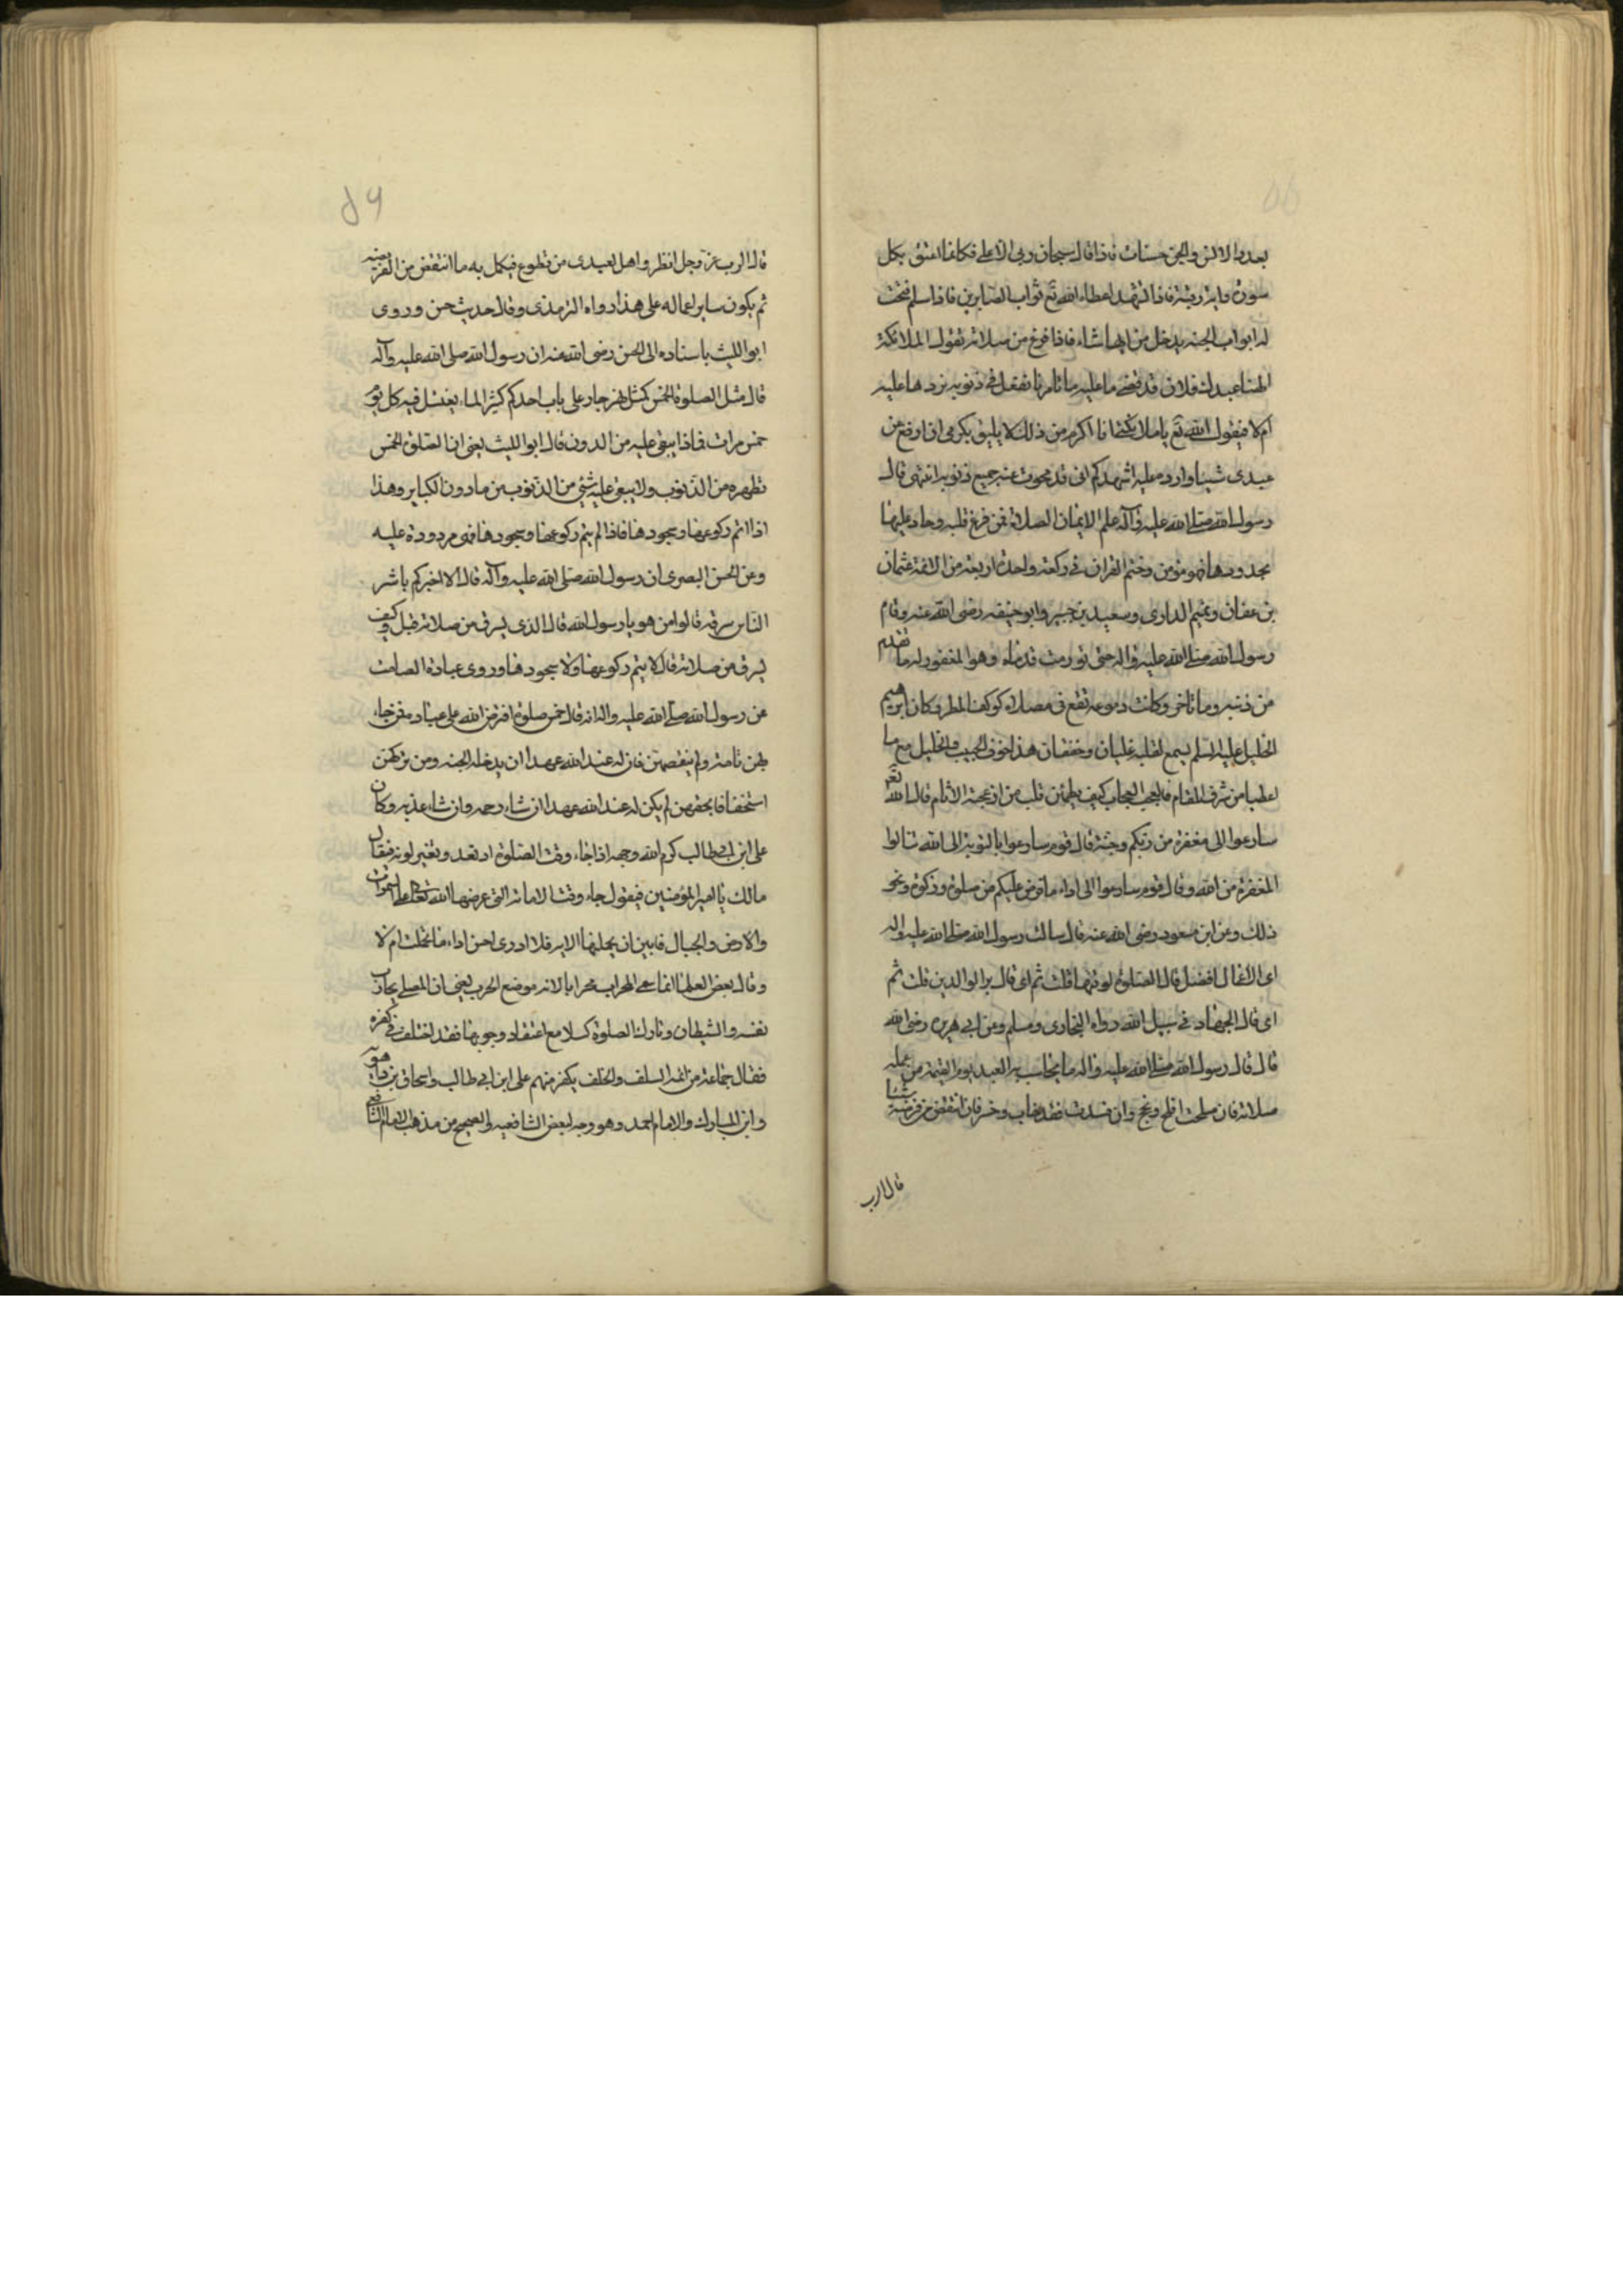 بعدد الانس والجن حسنات فاذا قال سبحان ربى الاعلى فكانما اعتق بكل
سورة واية رقبة فاذا تشهد اعطاه الله تع ثواب الصابرين فاذا سلم فتحت
له ابواب الجنة يدخل من ايها شاء فاذا فرغ من صلاته تقول الملائكة
الهنا عبدك فلان قد قضى ما عليه ما تامرنا نفعل فى ذنوبه نردها عليه
ام لا فيقول الله تع يا ملائكتى انا اكرم من ذلك لا يليق بكرمى ان ارفع من
عبدى شيئا وارده عليه اشهدكم انى قد محوت عنه جميع ذنوبه انتهى قال
رسول الله صلى الله عليه وآله علم الايمان الصلاة فمن فرغ قلبه وحاد عليها
بحدودها فهو مؤمن وختم القران فى ركعة واحدة اربعة من الائمة عثمان
بن عفان وتميم الدارى وسعيد بن جبير وابو حنيفه رضى الله عنه وقام
رسول الله صلى الله عليه واله حتى تورمت قدماه وهو المغفور له ما تقدم
من ذنبه وما تاخر وكانت دموعه تقع فى مصلاه كوكف المطر وكان ابرهيم
الخليل عليه السلم يسمع لقلبه غليان وخفقان هذا خوف الحبيب والخليل مع ما
اعطيا من شرف المقام فالعجب العجاب كيف يطمئن قلب من ازعجته الاثام قال الله تع
سارعوا الى مغفرة من ربكم وجنة قال قوم سارعوا بالتوبة الى الله تنالوا
المغفرة من الله وقال قوم سارعوا الى اداء ما فرض عليكم من صلوة وزكوة ونحو
ذلك وعن ابن مسعود رضى الله عنه قال سالت رسول الله صلى الله عليه واله
اى الاعمال افضل قال الصلوة لوقتها قلت ثم اى قال بر الوالدين قلت ثم
اى قال الجهاد فى سبيل الله رواه البخارى ومسلم وعن ابى هريره رضى الله
قال قال رسول الله صلى الله عليه واله ما يحاسب به العبد يوم القيمة من عمله
صلاته فان صلحت افلح ونجح وان فسدت فقد خاب وخسر فان انتقص من فريضته شيئا
قال الرب
قال الرب عز وجل انظروا هل لعبدى من تطوع فيكمل به ما انتقص من الفريضه
ثم يكون ساير اعماله على هذا رواه الترمذى وقال حديث حسن وروى
ابو الليث باسناده الى الحسن رضى الله عنه ان رسول الله صلى الله عليه وآله
قال مثل الصلوة الخمس كمثل نهر جار على باب احدكم كثير الماء يغتسل فيه كل يوم
خمس مرات فماذا يبقى عليه من الدرن قال ابو الليث يعنى ان الصلوة الخمس
تطهره من الذنوب ولا يبقى عليه شئ من الذنوب من مادون الكباير وهذا
اذا اتم ركوعها وسجودها فاذا لم يتم ركوعها وسجودها فهى مردودة عليه
وعن الحسن البصرى ان رسول الله صلى الله عليه وآله قال الا اخبركم باشر
الناس سرقة قالوا من هو يا رسول الله قال الذى يسرق من صلاته قيل وكيف
يسرق من صلاته قال لا يتم ركوعها ولا سجودها وروى عبادة الصامت
عن رسول الله صلى الله عليه واله انه قال خمس صلوة افترض الله على عباده فمن جاء
بهن تامة ولم ينقصهن فان له عند الله عهدا ان يدخله الجنه ومن تركهن
استخفافا بحقهن لم يكن له عند الله عهدا ان شاء رحمه وان شاء عذبه وكان
على ابن ابى طالب كرم الله وجهه اذا جاء وقت الصلوة ارتعد وتغير لونه فيقال
مالك يا امير المؤمنين فيقول جاء وقت الامانة التى عرضها الله تعالى على السموات
والارض والجبال فابين ان يحملنها الايه فلا ادرى احسن اداء ما تحملت ام لا
وقال بعض العلما انما سمى المحراب محرابا لانه موضع الحرب يعنى ان المصلى يحارب
نفسه والشيطان وتارك الصلوة كسلا مع اعتقاد وجوبها فقد اختلف فى كفره
فقال جماعة من ائمة السلف والخلف يكفر منهم على ابن ابى طالب واسحاق بن راهويه
وابن المبارك والامام احمد وهو وجه لبعض الشافعيه والصحيح من مذهب الامام الشافعى